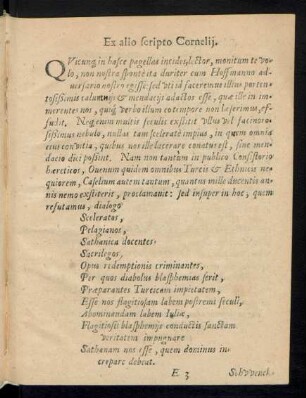 Ex alio scripto Cornelij.
QVicunq́; in hasce pagellas incides, lector, monitum te vo-
lo, non nostra sponte ita duriter cum Hoffmanno ad-
versario nostro egisse: sed vti id faceremus illius porten-
tosissimis calumnijs & mendacijs adactos esse, quæ ille in im-
merentes nos, quiq́ verbo illum eo tempore non læserimus, ef-
fudit. Neq́; enim multis seculis exstitit vllus vel facinoro-
sissimus nebulo, nullus tam scelerate impius, in quem omnia
eius convitia, quibus nos illo lacerare conatus est, sine menda-
cio dici possint. Nam non tantum in publico Consistorio
hæreticos, Ouenum quidem omnibus Turcis & Ethnicis ne-
quiorem, Caselium autem tantum, quantus mille ducentis an-
nis nemo exstiterit, proclamauit: sed insuper in hoc, quem
refutamus, dialogo
Sceleratos,
Pelagianos,
Sathanica docentes,
Sacrilegos,
Opus redemptionis criminantes,
Per quos diabolus blasphemias serit,
Præparantes Turcicam impietatem,
Esse nos flagitiosam labem postremi seculi,
Abominandam labem Juliæ,
Flagitiosis blasphemijs conductis sanctam
veritatem impugnare
Sathanam nos esse, quem dominus in-
crepare debeat.
E 3
Schvvenck-